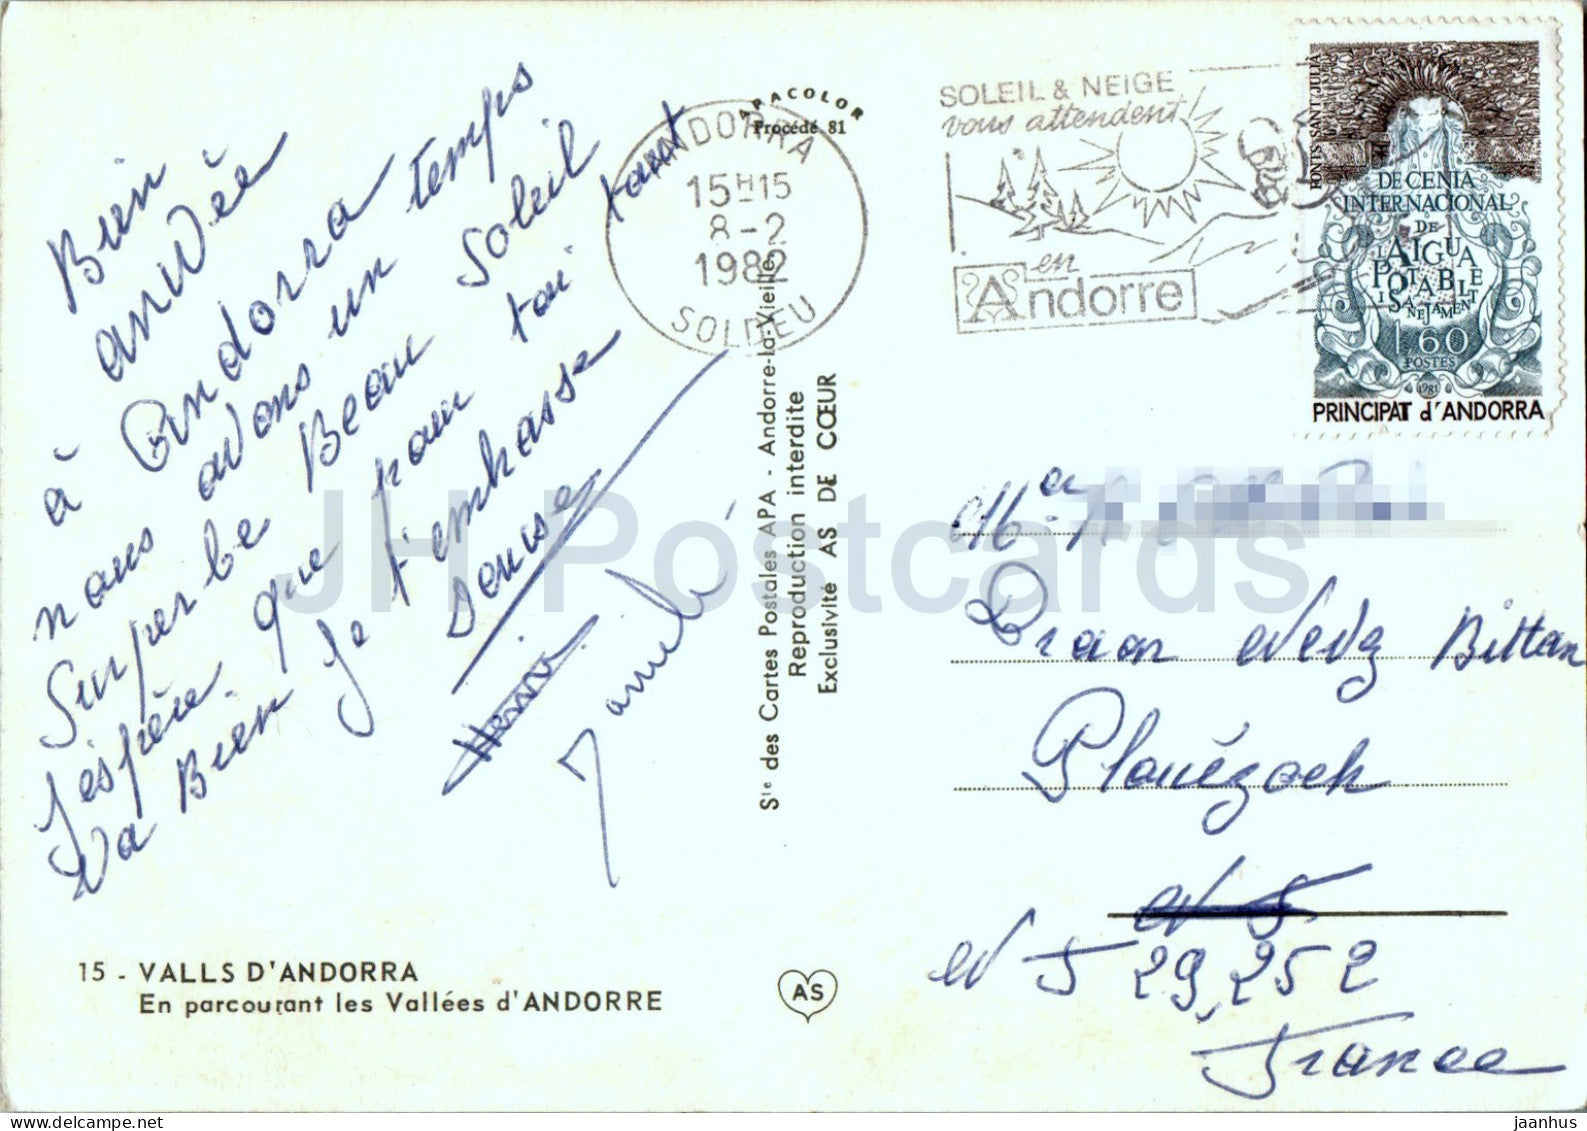 Bien arrivée
à Andorra temps
nous avons un
Superbe Beau Soleil
J'espère que pour toi tout
Va Bien Je t'embrasse
Denise
15 - VALLS D'ANDORRA
En parcourant les Vallées d'ANDORRE
APACOLOR
Procédé 81
Ste des Cartes Postales APA - Andorre-la-Vieille
Reproduction interdite
Exclusivité AS DE CŒUR
AS
ANDORRA
15H15
8-2
1982
SOLDEU
SOLEIL & NEIGE
vous attendent
en
Andorre
FONTS SANT JULIÀ
DECENIA
INTERNACIONAL
DE
L'AIGUA
POTABLE
I SANEJAMENT
1,60
POSTES
1981
PRINCIPAT d'ANDORRA
Plouézoch
29,252
France
JH Postcards
jaanhus